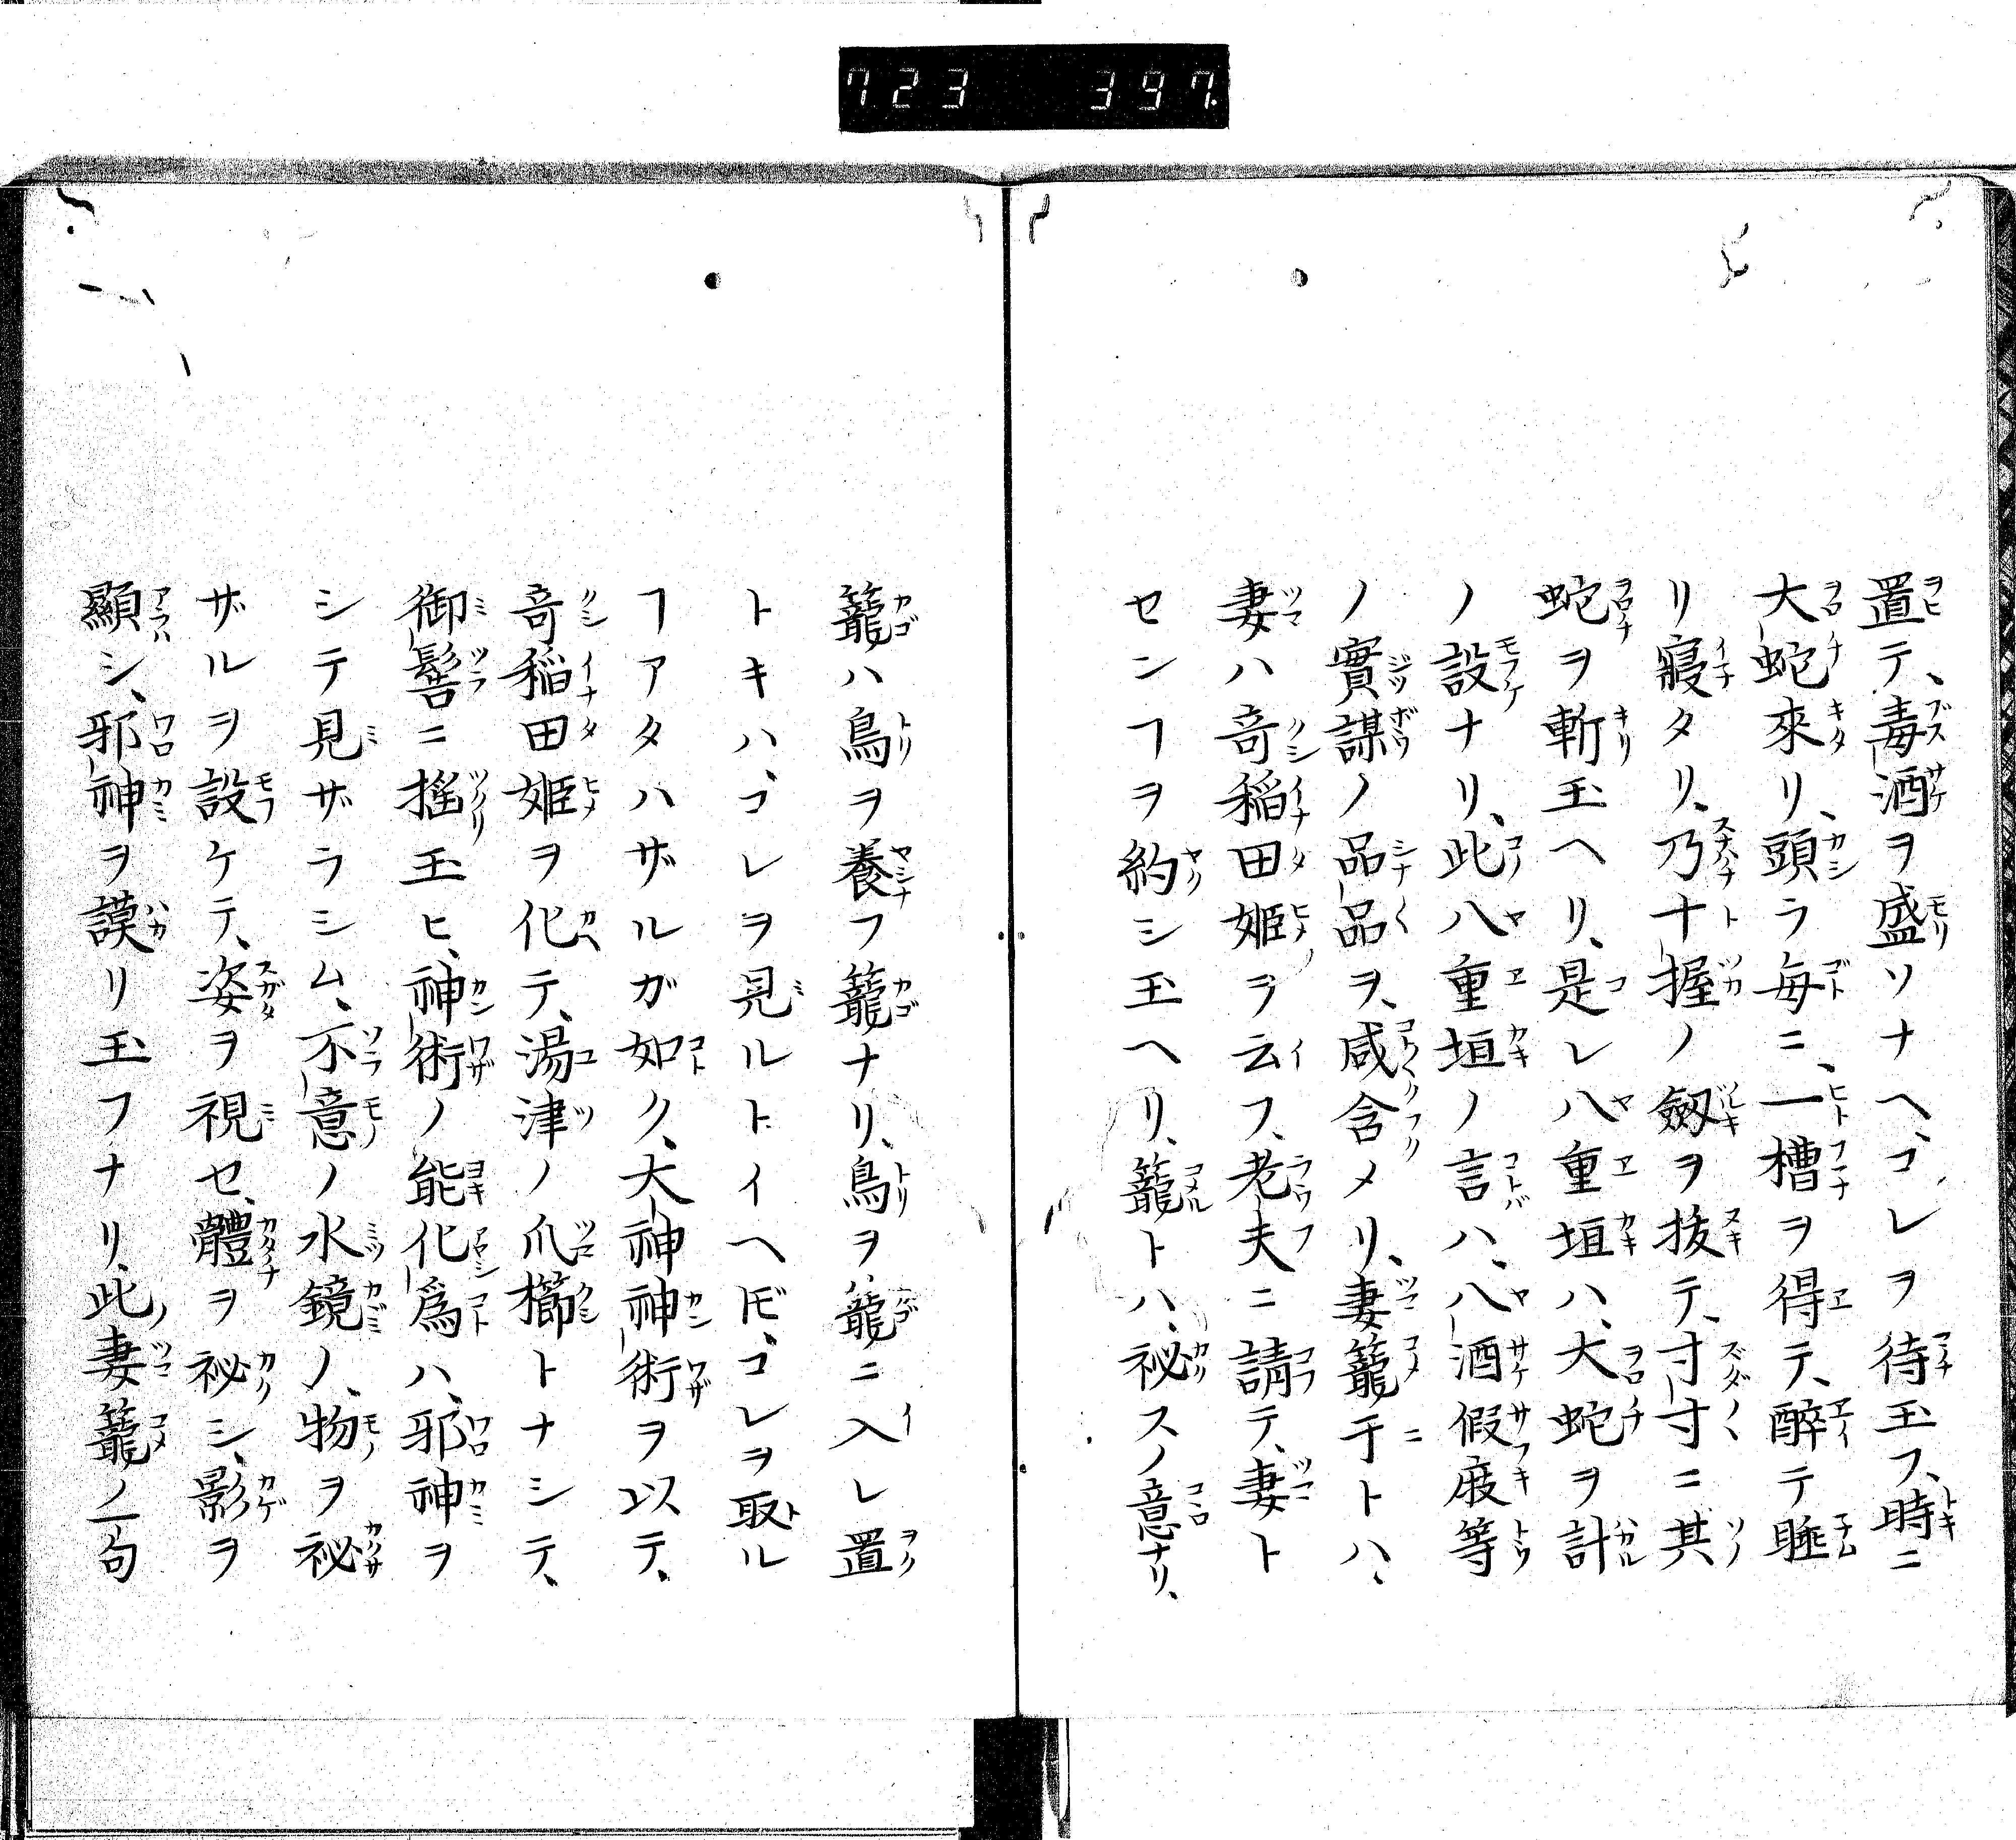 723 397.
置テ、毒酒ヲ盛ソナヘ、コレヲ待玉フ、時ニ
大蛇來リ、頭ラ毎ニ、一槽ヲ得テ、醉テ睡
リ寢タリ、乃十握ノ劔ヲ拔テ、寸寸ニ其
蛇ヲ斬玉ヘリ、是レ八重垣ハ、大蛇ヲ計
ノ設ナリ、此八重垣ノ言ハ、八酒假庪等
ノ實謀ノ品品ヲ、咸含メリ、妻籠于トハ、
妻ハ竒稲田姫ヲ云フ、老夫ニ請テ、妻ト
センヿヲ約シ玉ヘリ、籠トハ、祕スノ意ナリ、
籠ハ鳥ヲ養フ籠ナリ、鳥ヲ籠ニ入レ置
トキハ、コレヲ見ルトイヘ𪜈、コレヲ取ル
ヿアタハザルガ如ク、大神神術ヲ以テ、
竒稲田姫ヲ化テ、湯津ノ爪櫛トナシテ、
御髻ニ揺玉ヒ、神術ノ能化爲ハ、邪神ヲ
シテ見ザラシム、不意ノ水鏡ノ、物ヲ祕
ザルヲ設ケテ、姿ヲ視セ、體ヲ祕シ、影ヲ
顯シ、邪神ヲ謨リ玉フナリ、此妻籠ノ一句